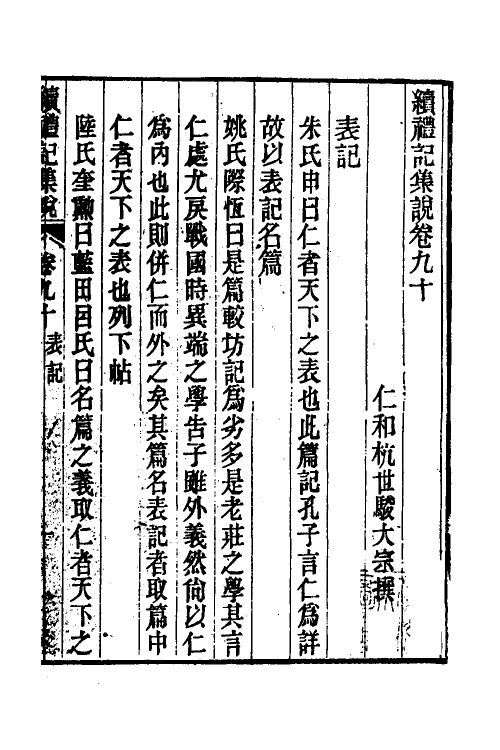 續禮記集說卷九十
仁和杭世駿大宗撰
表記
朱氏申曰仁者天下之表也此篇記孔子言仁爲詳
故以表記名篇
姚氏際恆曰是篇較坊記爲劣多是老莊之學其言
仁處尤戾戰國時異端之學告子雖外義然尙以仁
爲內也此則併仁而外之矣其篇名表記者取篇中
仁者天下之表也列下帖
陸氏奎勳曰藍田呂氏曰名篇之義取仁者天下之
續禮記集說 卷九十 表記